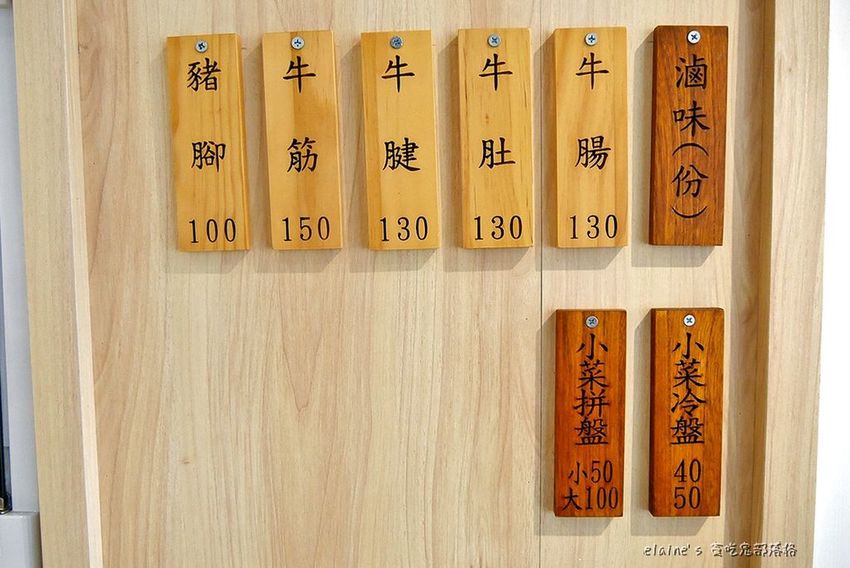 滷味(份)
牛腸
130
牛肚
130
牛腱
130
牛筋
150
豬腳
100
小菜冷盤
40
50
小菜拼盤
小50
大100
elaine's 貪吃鬼部落格